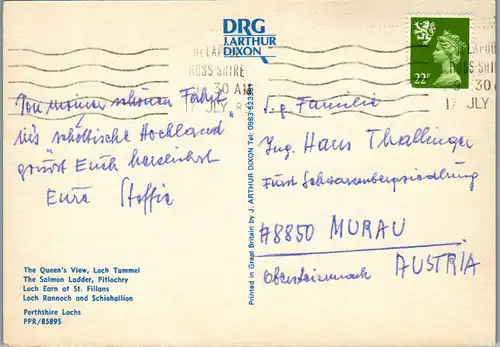 DRG
J. ARTHUR
DIXON
ULLAPOOL
ROSS-SHIRE
9 30 AM
17 JLY 8
ROSS-SHIRE
9 30 AM
17 JLY
22P
Von meiner schönen Fahrt
ins schottische Hochland
grüsst Euch herzlichst
Eure Steffie
S.g. Familie
Ing. Hans Thallinger
Fürst Schwarzenbergsiedlung
A8850 MURAU
Obersteiermark AUSTRIA
Printed in Great Britain by J. ARTHUR DIXON Tel: 0983-523381
The Queen's View, Loch Tummel
The Salmon Ladder, Pitlochry
Loch Earn at St. Fillans
Loch Rannoch and Schiehallion
Perthshire Lochs
PPR/85895